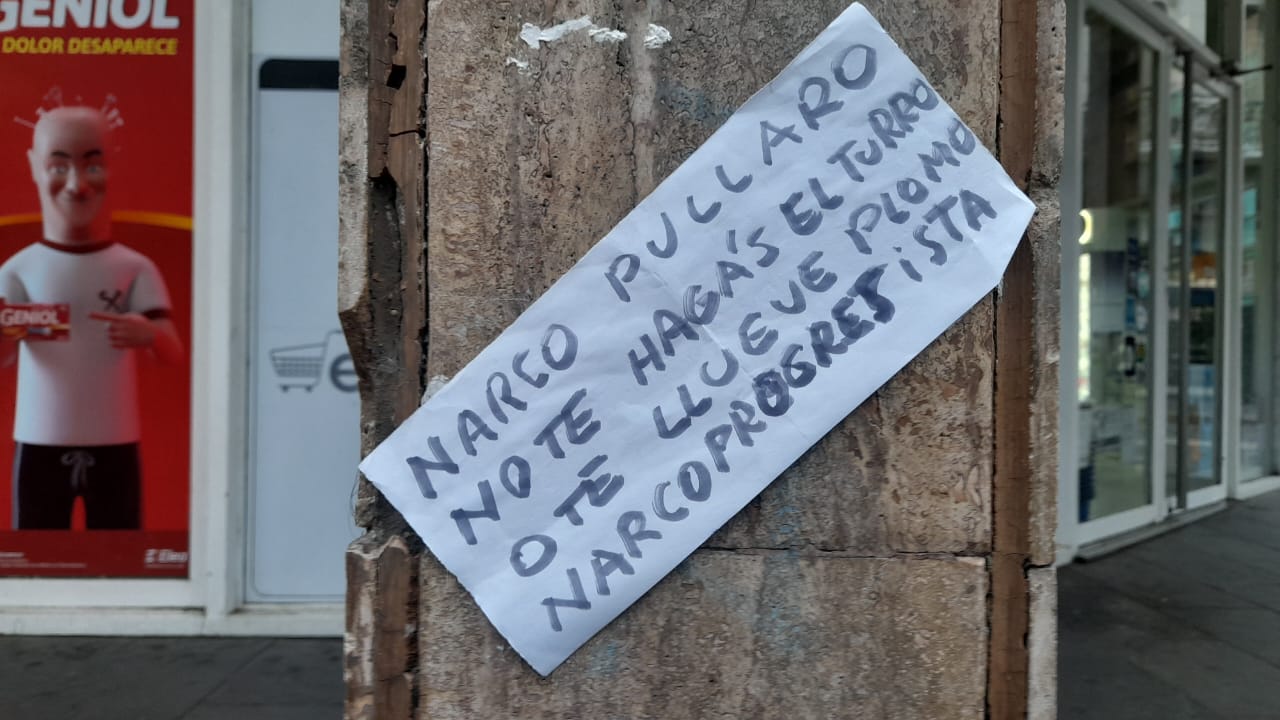 GENIOL
DOLOR DESAPARECE
GENIOL
NARCO PULLARO
NO TE HAGA'S EL TURRAO
O TE LLUEVE PLOMO
NARCOPROGRESiSTA